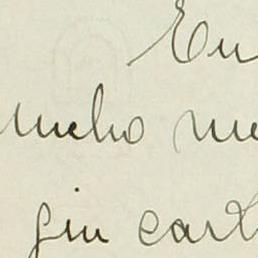 En
mucho me
giu cart